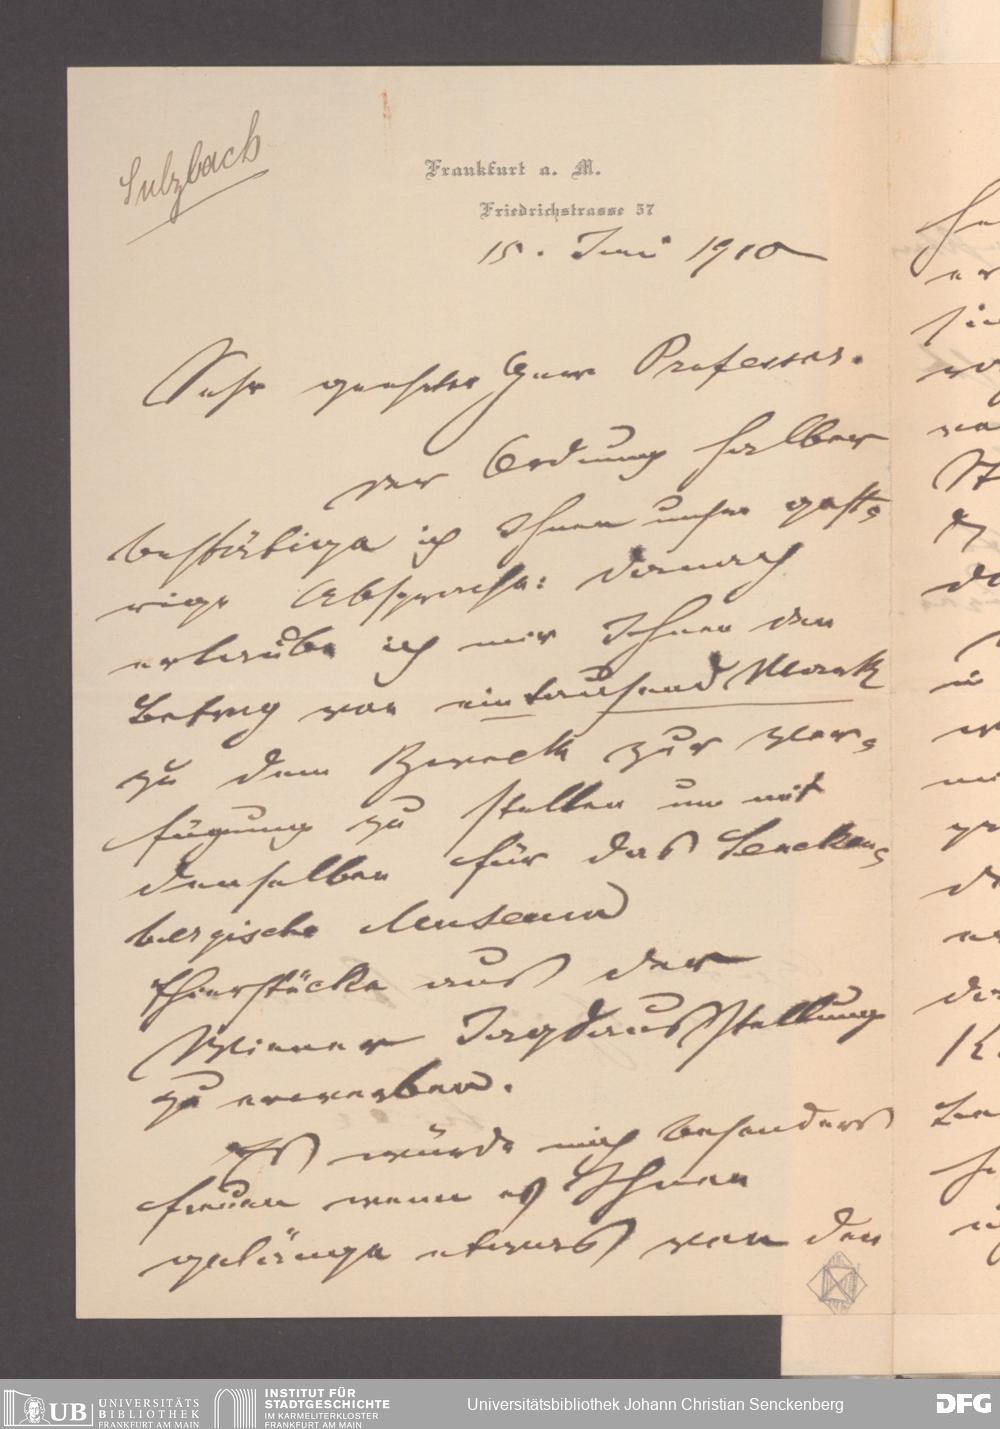 Sulzbach
Frankfurt a. M.
Friedrichstrasse 57
15. Juni 1910
Sehr geehrter Herr Professor.
der Ordnung halber
bestätige ich Ihnen unsre gest-
rige Absprache: danach
erlaube ich mir Ihnen den
Betrag von eintausend Mark
zu dem Zweck zur Ver-
fügung zu stellen um mit
denselben für das Sencken-
bergische Museum
Thierstücke aus der
Wiener Jagdausstellung
zu erwerben.
Es würde mich besonders
freuen wenn es Ihnen
gelänge etwas von den
UB UNIVERSITÄTS
BIBLIOTHEK
FRANKFURT AM MAIN
INSTITUT FÜR
STADTGESCHICHTE
IM KARMELITERKLOSTER
FRANKFURT AM MAIN
Universitätsbibliothek Johann Christian Senckenberg
DFG